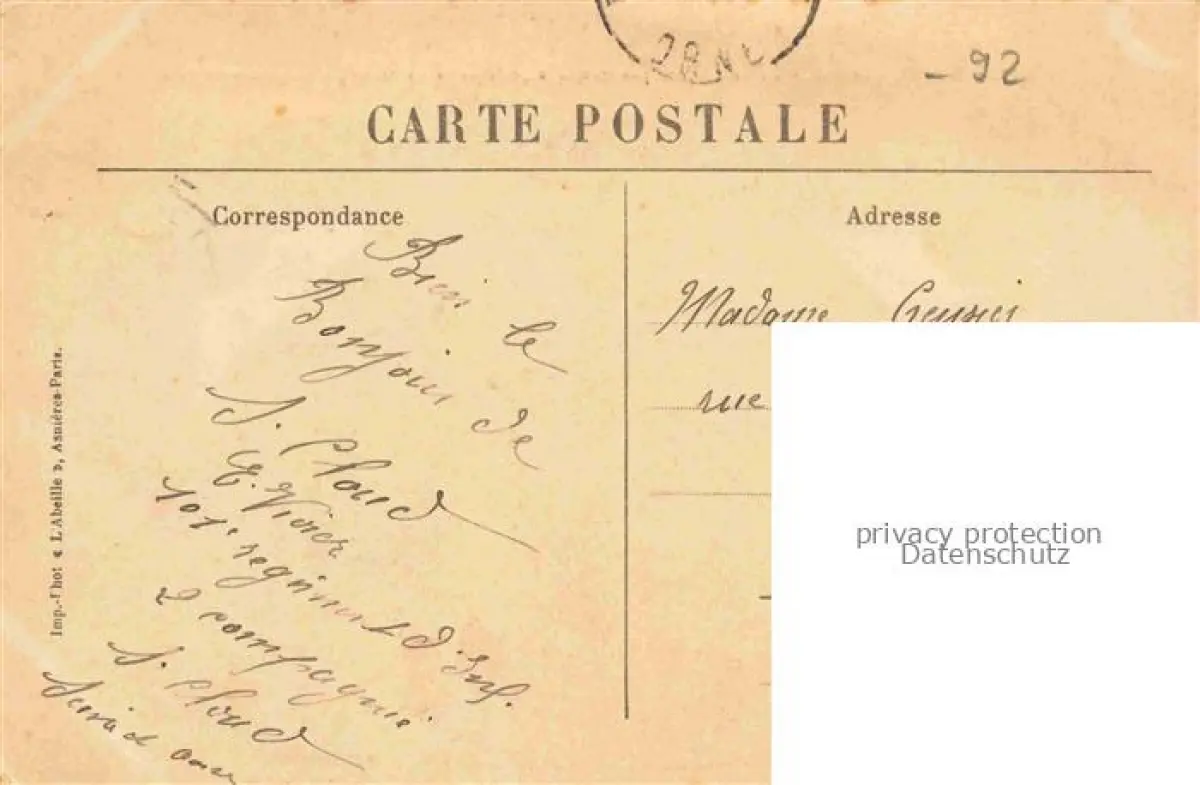 - 92
CARTE POSTALE
Correspondance
Bien le
Bonjour de
S. Cloud
E. Vivier
101e regiment d'Inf.
2 compagnie
S. Cloud
Seine et Oise
Imp.-Phot « L'Abeille », Asnières-Paris.
Adresse
Madame
rue
privacy protection
Datenschutz